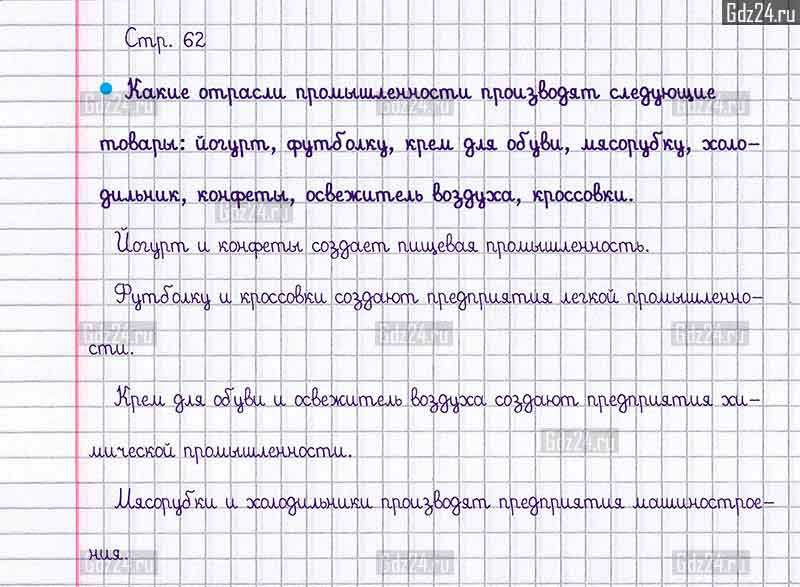 Gdz24.ru
Стр. 62
Какие отрасли промышленности производят следующие
товары: йогурт, футболку, крем для обуви, мясорубку, холо-
дильник, конфеты, освежитель воздуха, кроссовки.
Йогурт и конфеты создает пищевая промышленность.
Футболку и кроссовки создают предприятия легкой промышленно-
сти.
Крем для обуви и освежитель воздуха создают предприятия хи-
мической промышленности.
Мясорубки и холодильники производят предприятия машинострое-
ния.